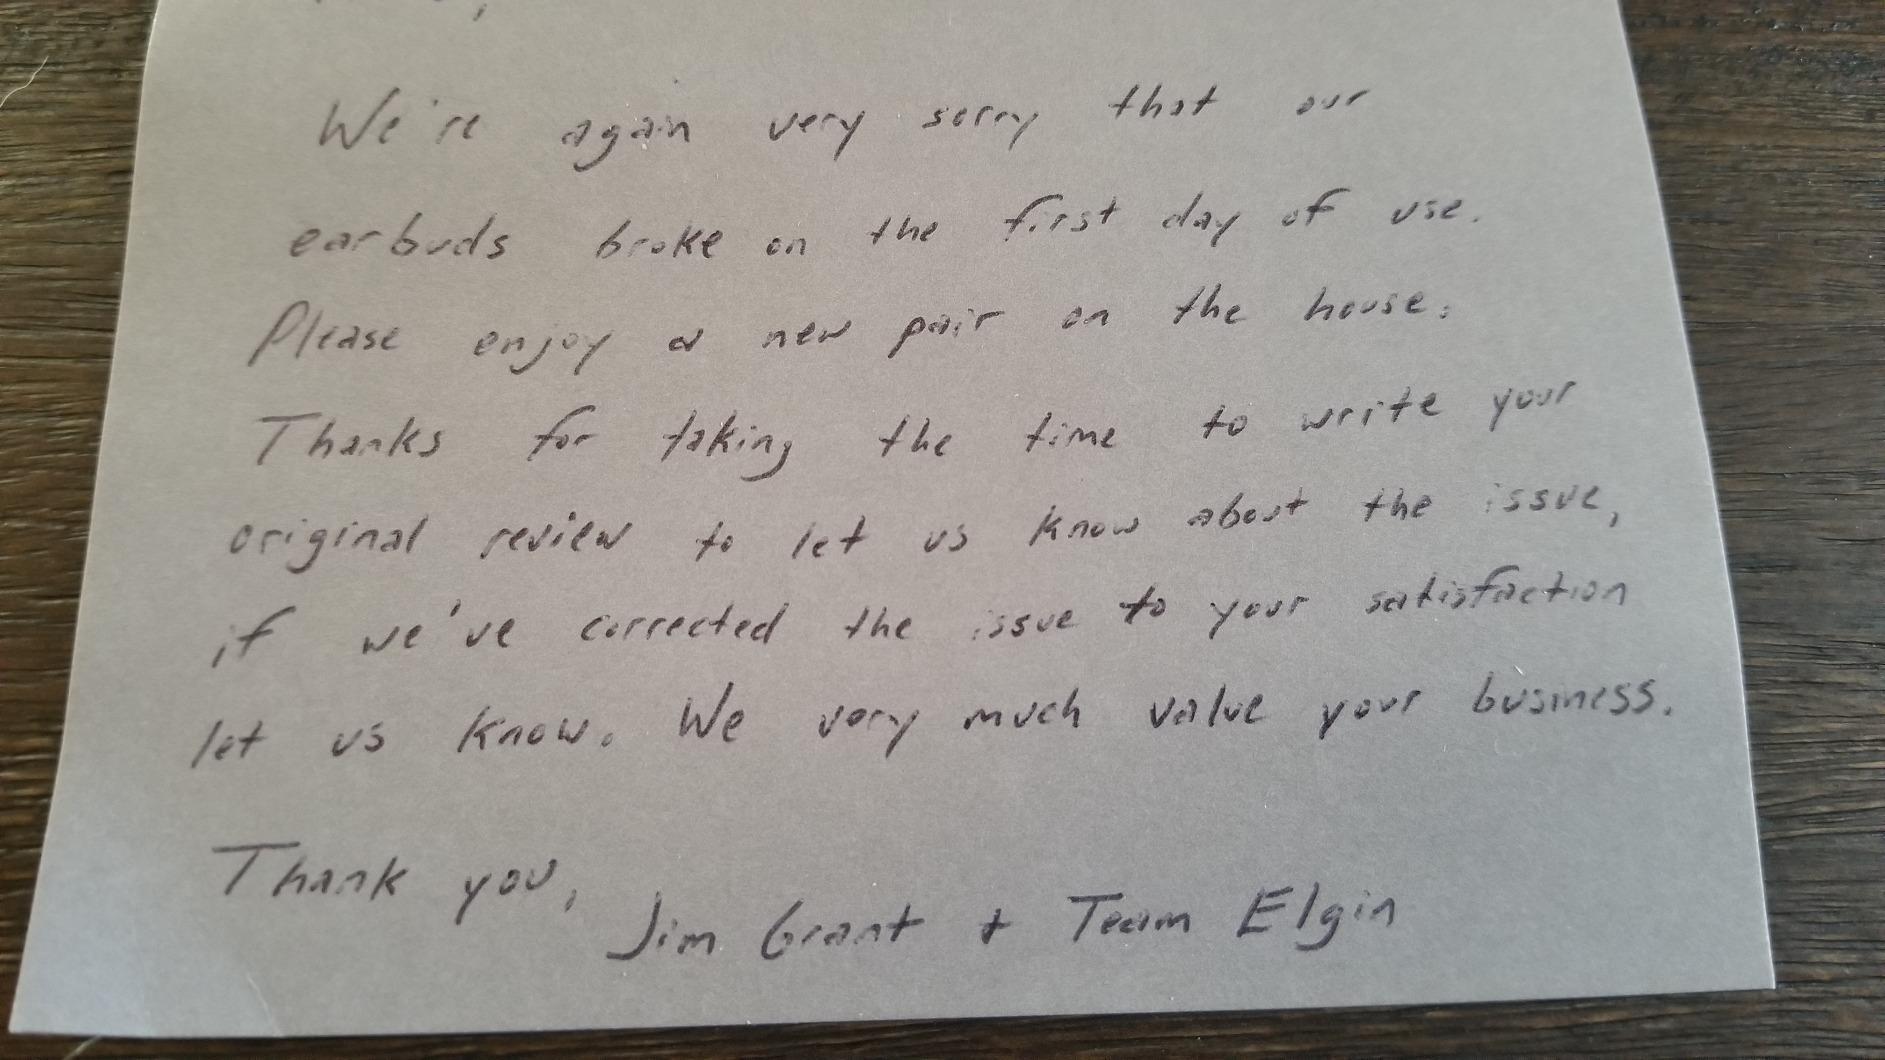 We're again very sorry that our
earbuds broke on the first day of use.
Please enjoy a new pair on the house.
Thanks for taking the time to write your
original review to let us know about the issue,
if we've corrected the issue to your satisfaction
let us know. We very much value your business.
Thank you,
Jim Grant + Team Elgin